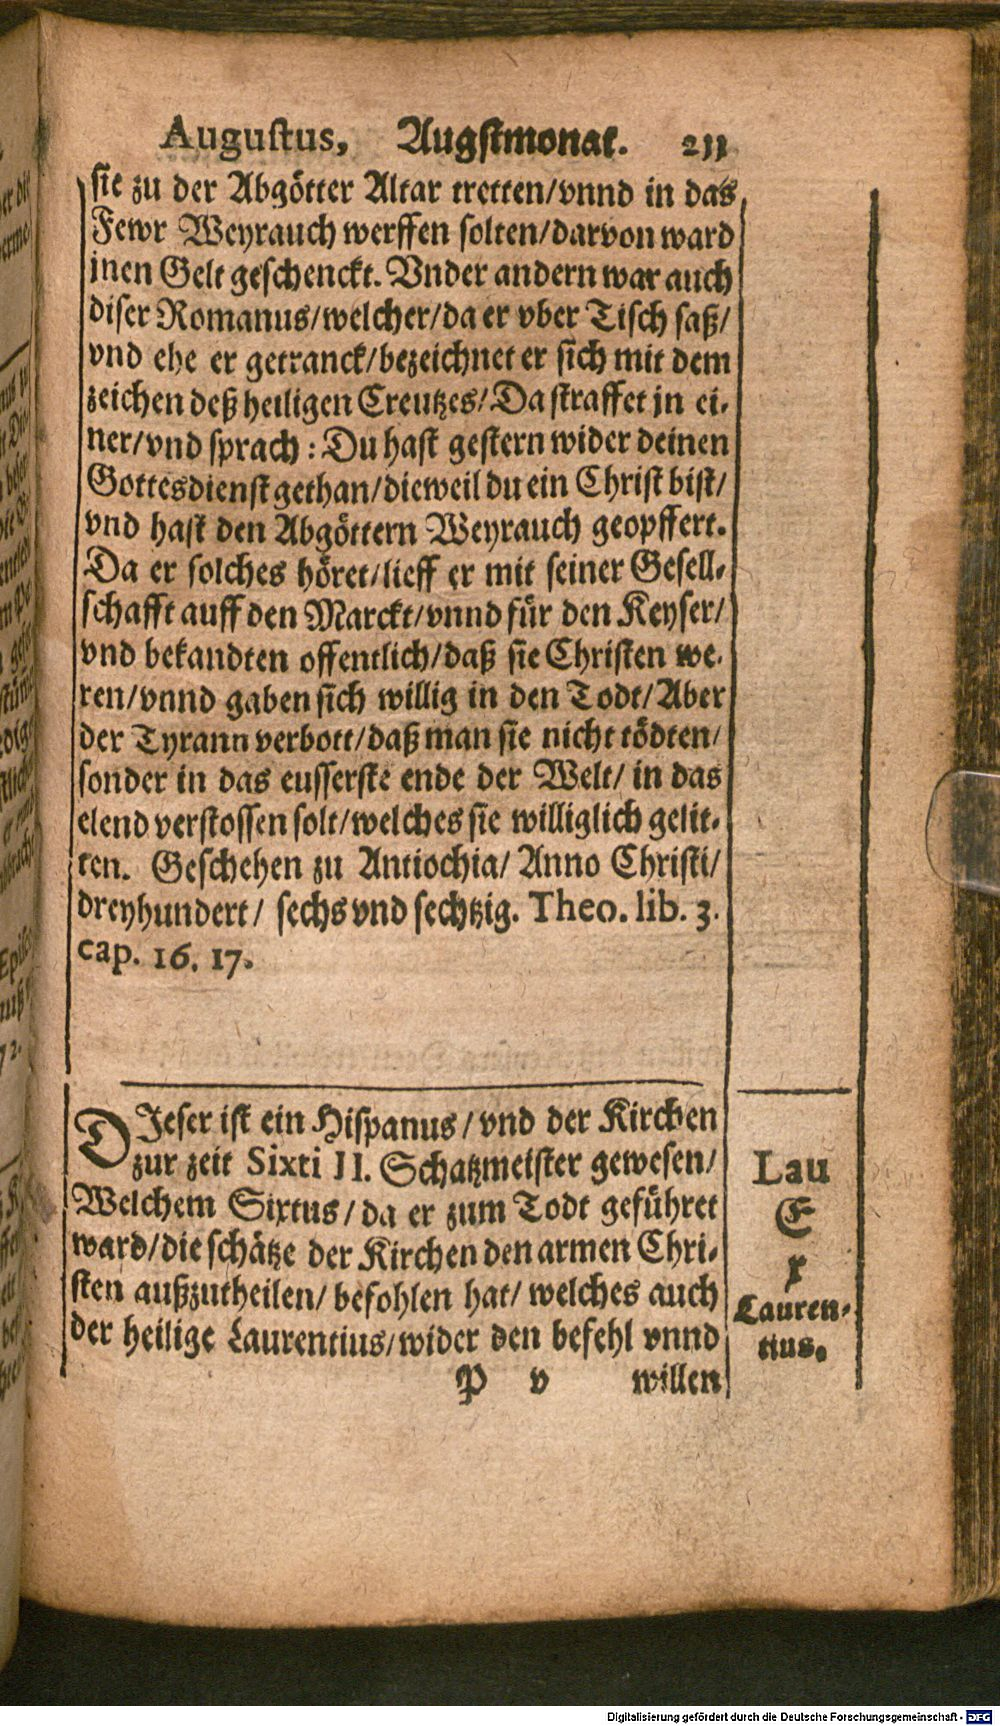 Augustus, Augstmonat. 211
sie zu der Abgötter Altar tretten/vnnd in das
Fewr Weyrauch werffen solten/darvon ward
jnen Gelt geschenckt. Vnder andern war auch
diser Romanus/welcher/da er vber Tisch saß/
vnd ehe er getranck/bezeichnet er sich mit dem
zeichen deß heiligen Creutzes/Da straffet jn ei-
ner/vnd sprach: Du hast gestern wider deinen
Gottesdienst gethan/dieweil du ein Christ bist/
vnd hast den Abgöttern Weyrauch geopffert.
Da er solches höret/lieff er mit seiner Gesell-
schafft auff den Marckt/vnnd für den Keyser/
vnd bekandten offentlich/daß sie Christen we-
ren/vnnd gaben sich willig in den Todt/Aber
der Tyrann verbott/daß man sie nicht tödten/
sonder in das eusserste ende der Welt/ in das
elend verstossen solt/welches sie williglich gelit-
ten. Geschehen zu Antiochia/ Anno Christi/
dreyhundert/ sechs vnd sechtzig. Theo. lib. 3.
cap. 16. 17.
DJeser ist ein Hispanus/vnd der Kirchen
zur zeit Sixti II. Schatzmeister gewesen/
Welchem Sixtus/da er zum Todt geführet
ward/die schätze der Kirchen den armen Chri-
sten außzutheilen/ befohlen hat/ welches auch
der heilige Laurentius/wider den befehl vnnd
P v willen
Lau
E
x
Lauren-
tius.
Digitalisierung gefördert durch die Deutsche Forschungsgemeinschaft - DFG